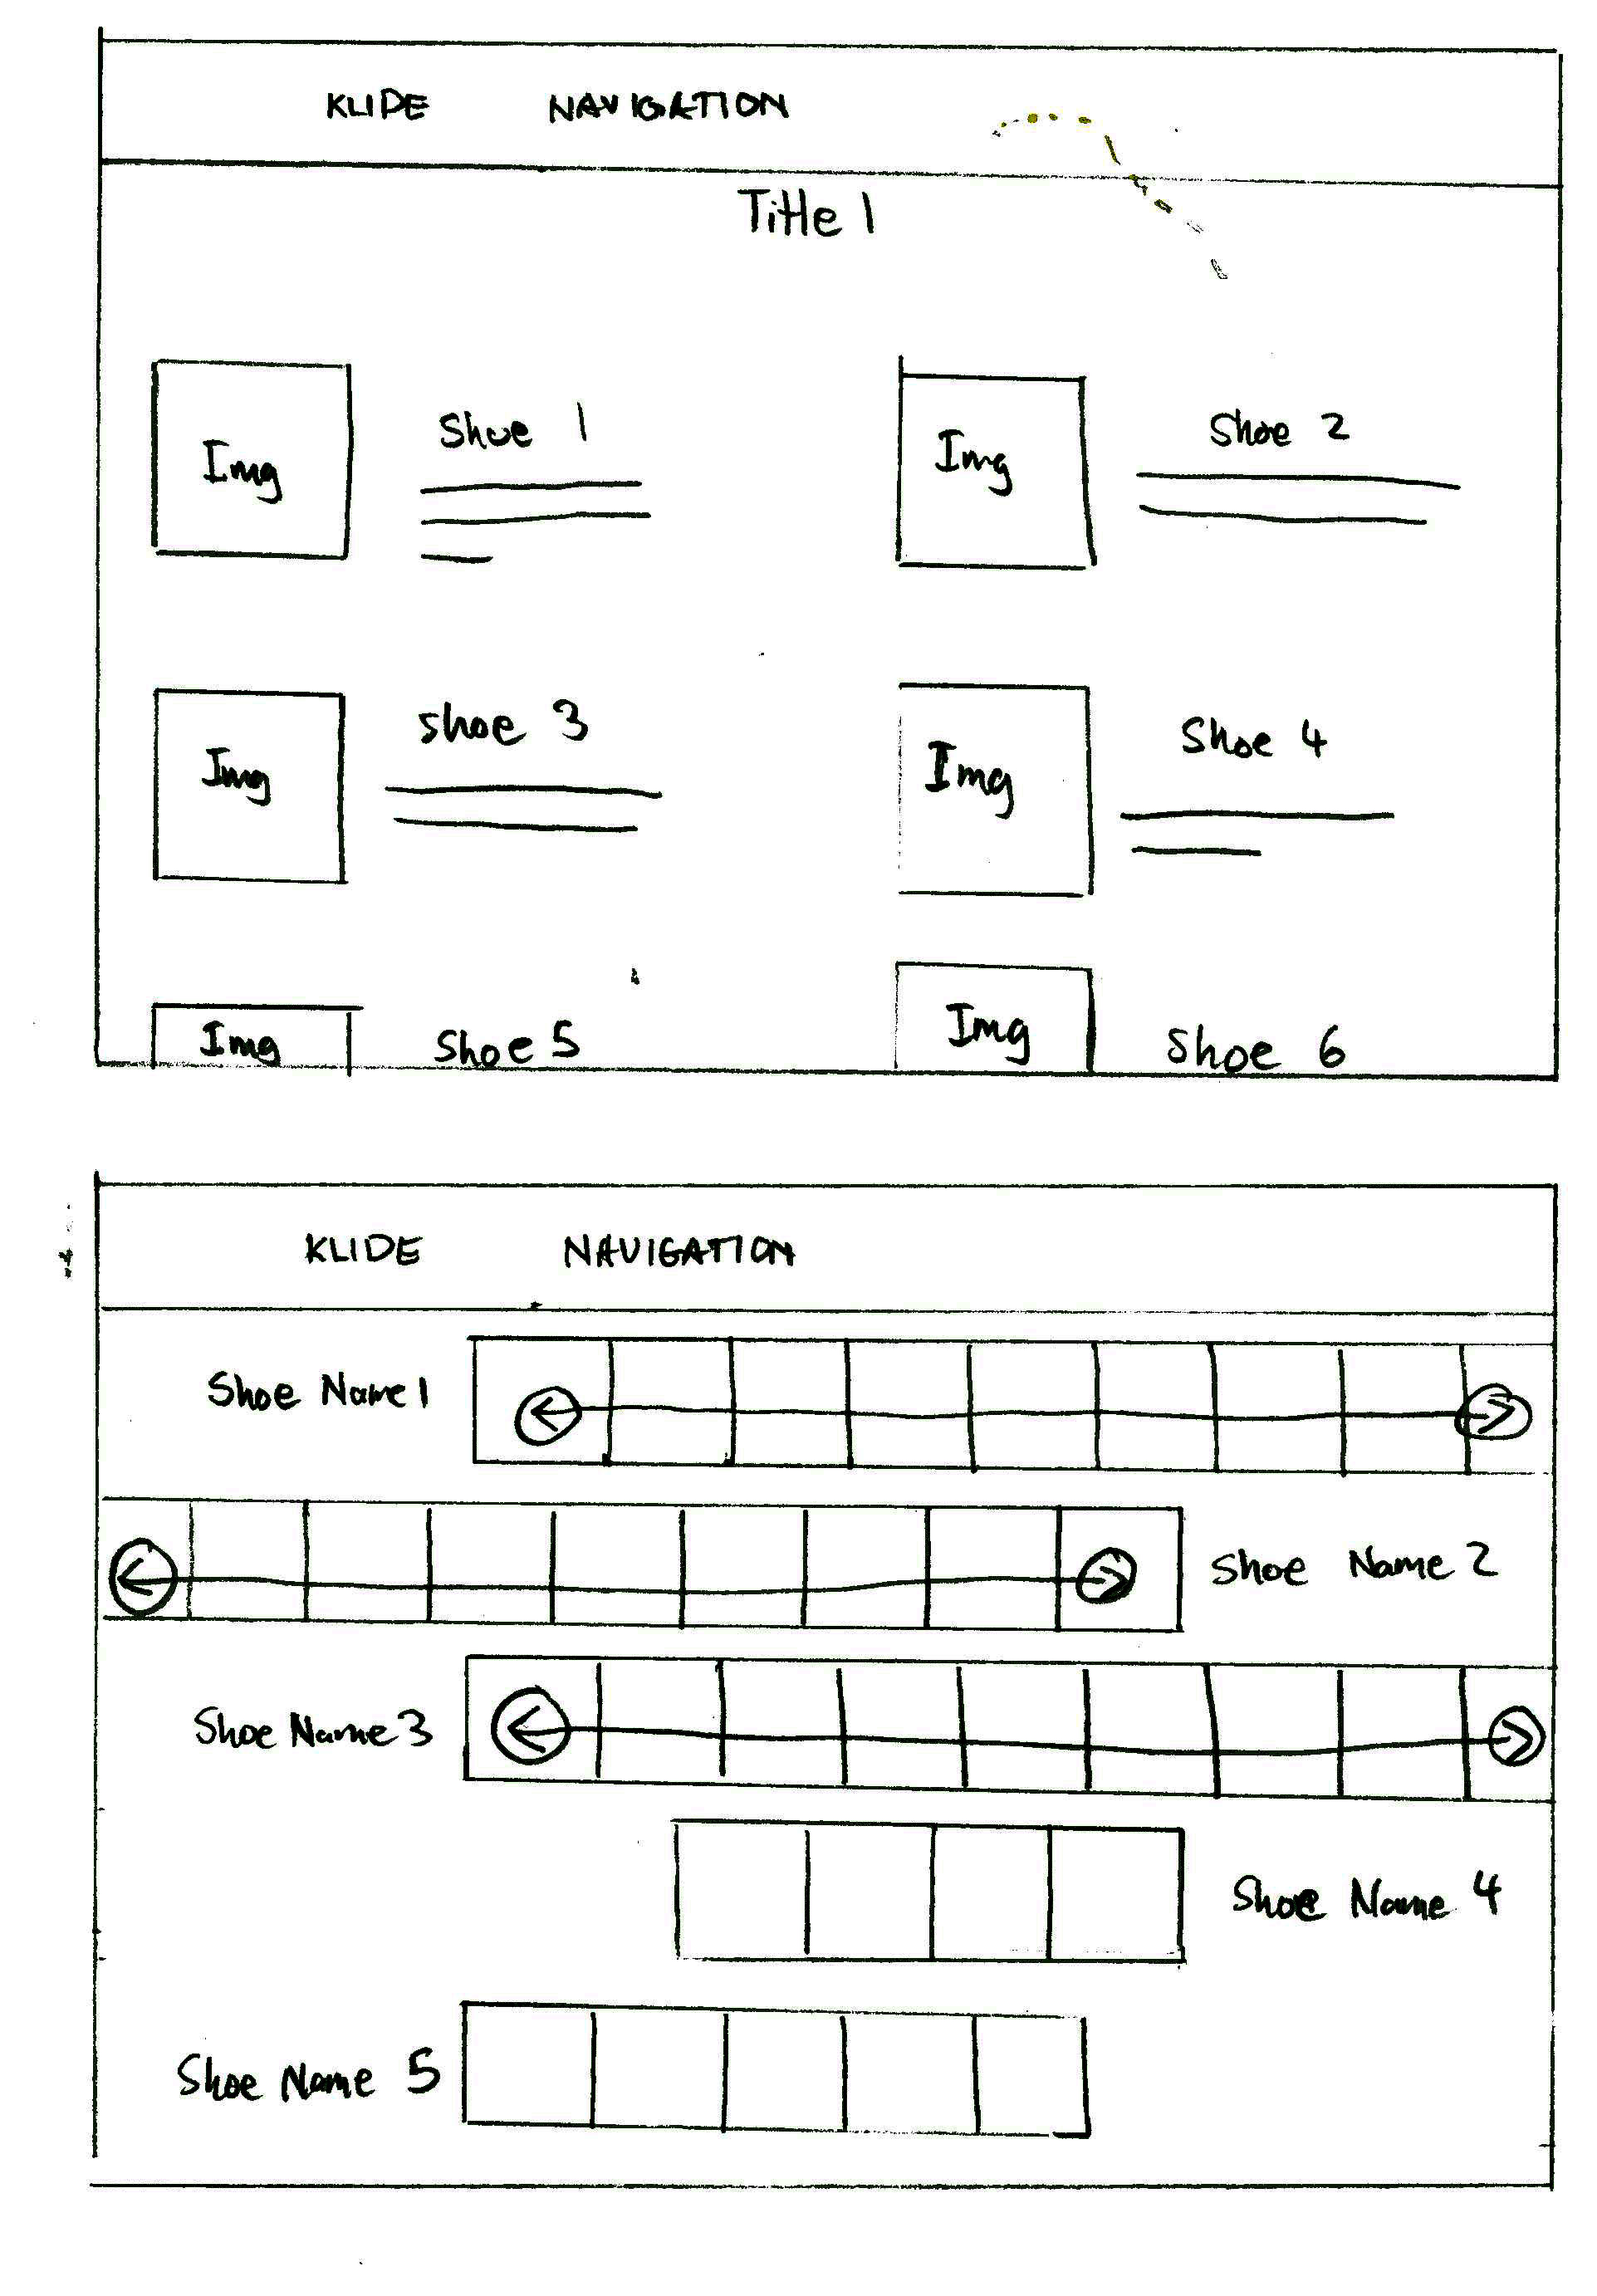 KLIDE NAVIGATION
Title 1
Img Shoe 1 Img Shoe 2
Img Shoe 3 Img Shoe 4
Img Shoe 5 Img Shoe 6
KLIDE NAVIGATION
Shoe Name 1
Shoe Name 2
Shoe Name 3
Shoe Name 4
Shoe Name 5